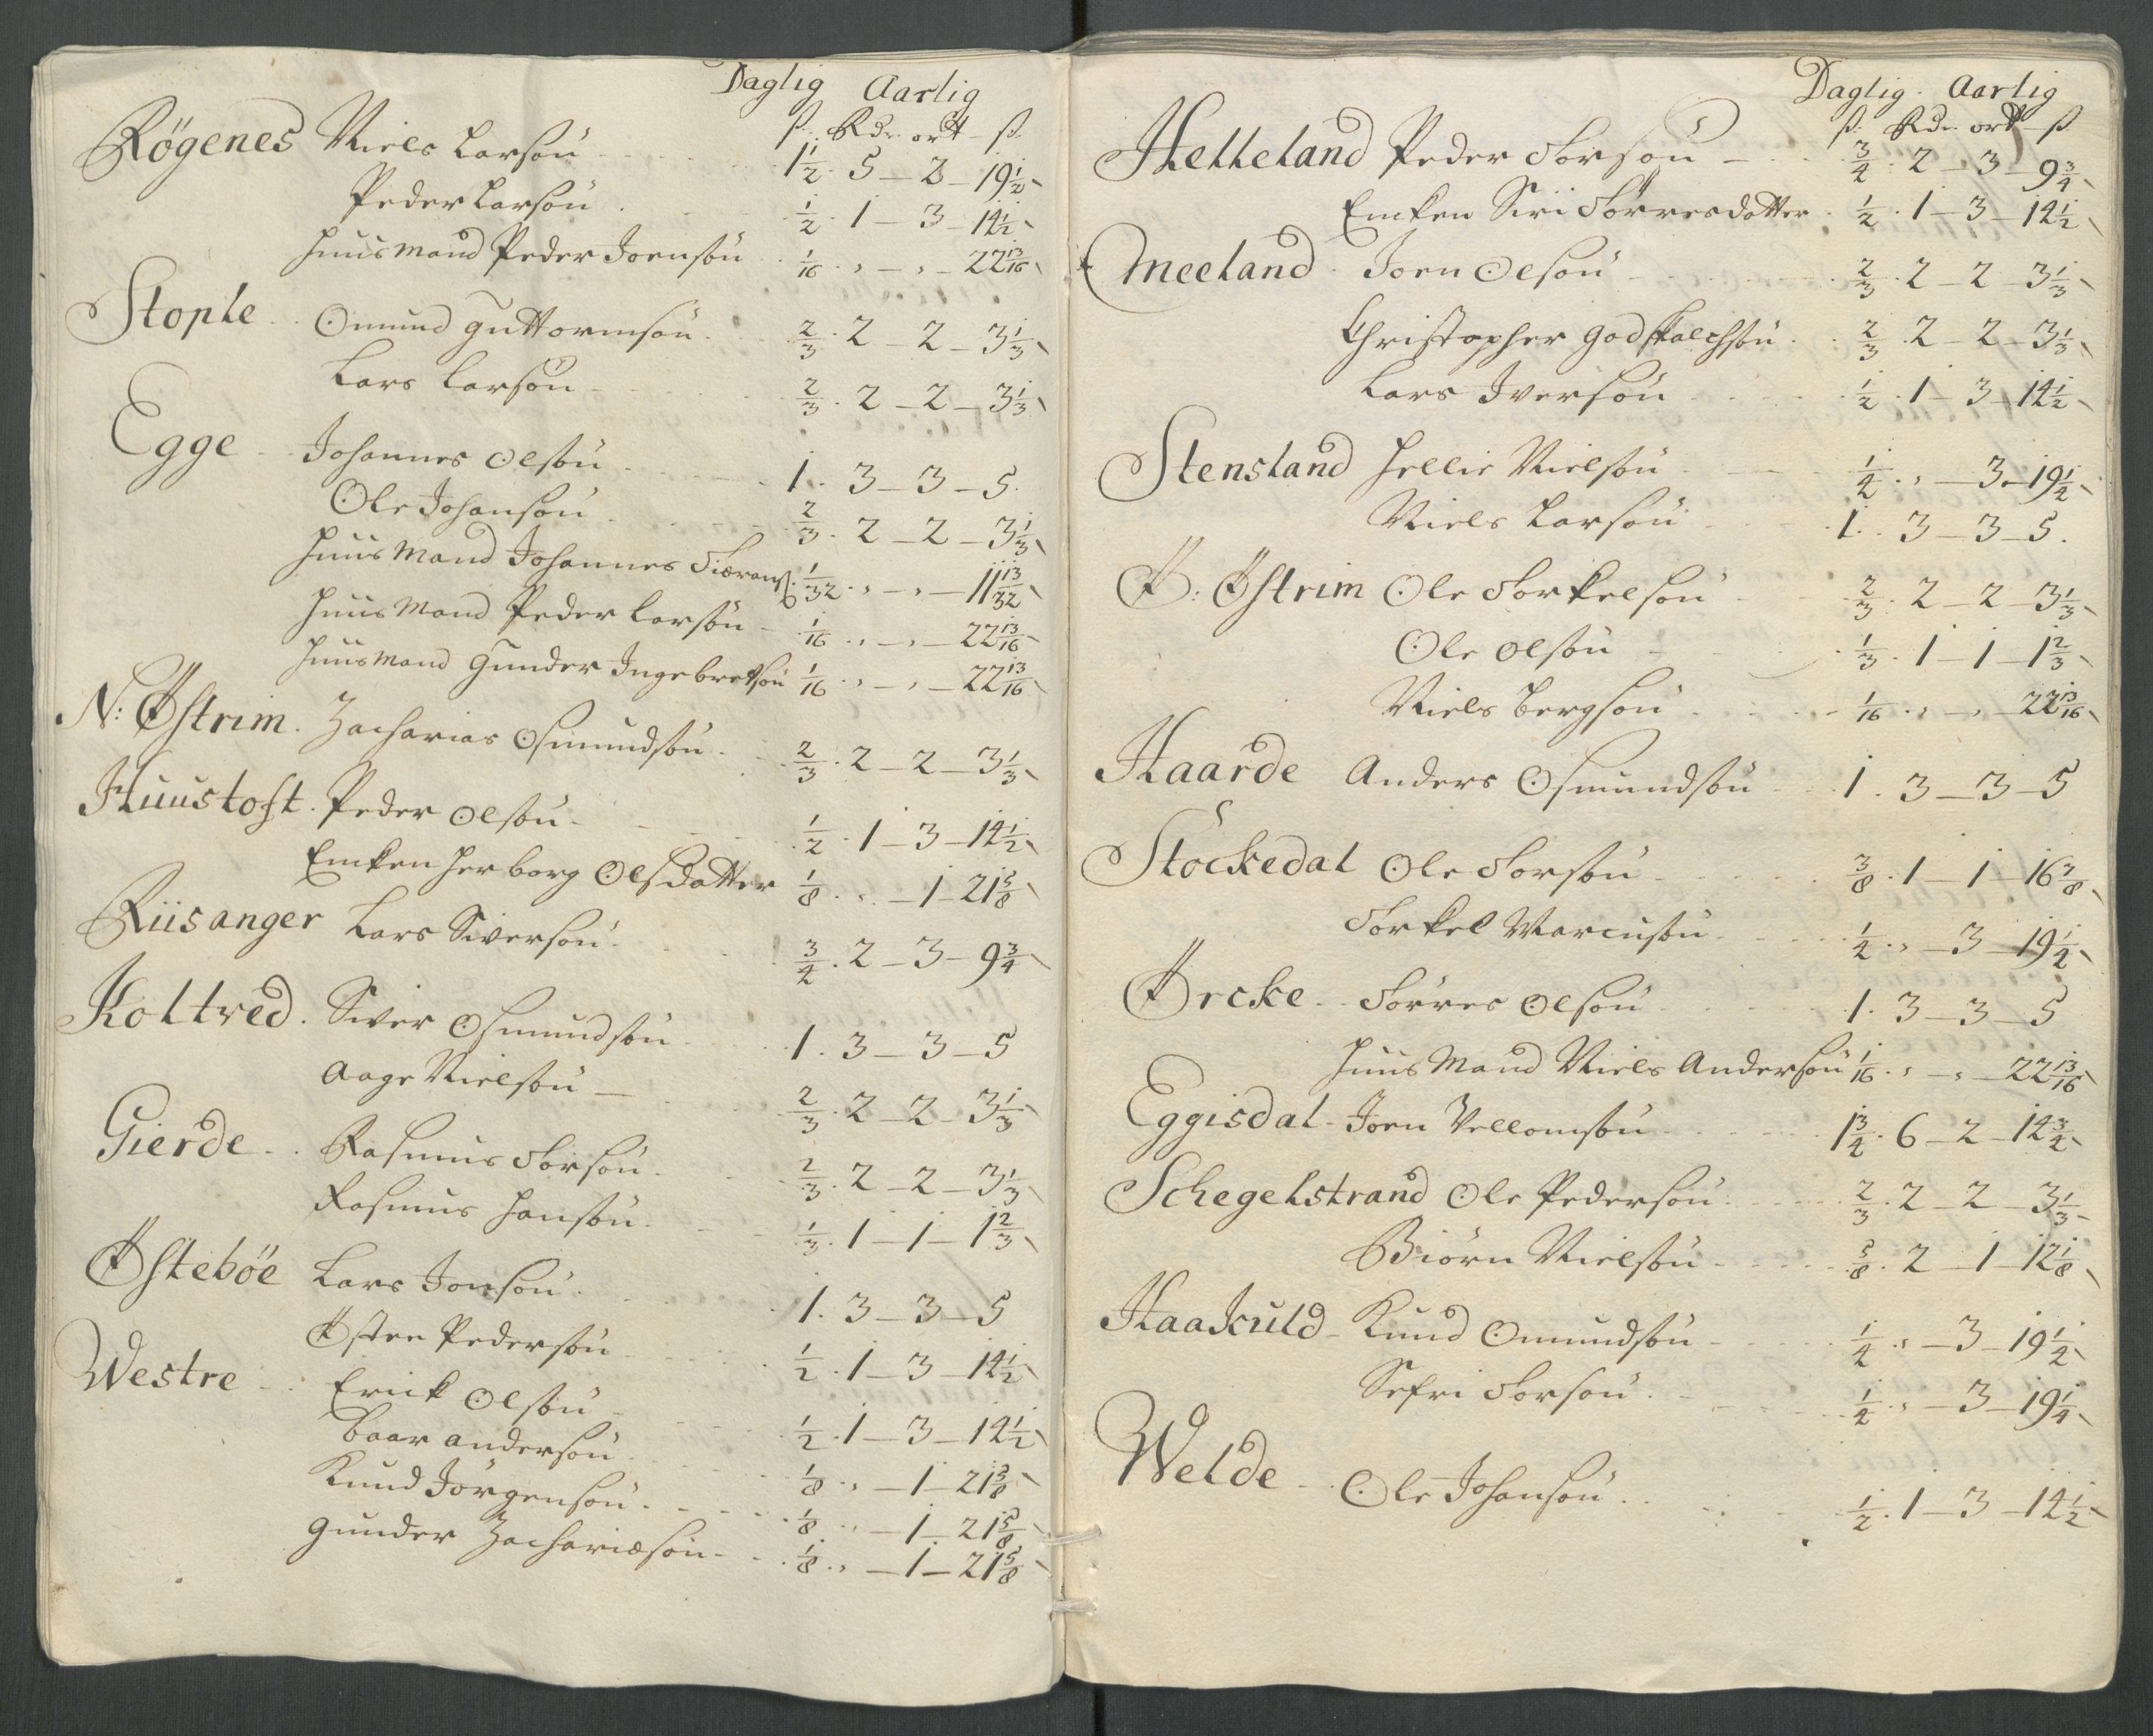 Daglig Aarlig
ß. Rdr. ort ß.
Røgenes Niels Larsøn 1½. 5 – 2 – 19½
Peder Larsøn ½. 1 – 3 – 14½
Huusmand Peder Joensøn 1/16. „ – „ – 22 13/16
Stople Omund Guttormsøn ⅔. 2 – 2 – 3⅓
Lars Larsøn ⅔. 2 – 2 – 3⅓
Egge Johannes Olsøn 1. 3 – 3 – 5.
Ole Johansøn ⅔. 2 – 2 – 3⅓
Huus Mand Johannes 1/32. „ – „ – 11 13/32
Huus Mand Peder Larsøn 1/16. „ – „ – 22 13/16
Huusmand Gunder Ingebretsøn 1/16. „ – „ – 22 13/16
N: Østrim. Zacharias Osmundsøn ⅔. 2 – 2 – 3⅓
Huustoft. Peder Olsøn ½. 1 – 3 – 14½
Encken Herborg Olsdatter ⅛. „ – 1 – 21⅝
Riisanger Lars Siversøn ¾. 2 – 3 – 9¾
Koltved. Siver Osmundsøn 1. 3 – 3 – 5
Aage Nielsøn ⅔. 2 – 2 – 3⅓
Gierde Rasmus Torsøn ⅔. 2 – 2 – 3⅓
Rasmus Hansøn ⅓. 1 – 1 – 1⅔
Østebøe Lars Jonsøn 1. 3 – 3 – 5
Østen Pedersøn ½. 1 – 3 – 14½
Westre Erick Olsøn ½. 1 – 3 – 14½
Baar Andersøn ⅛. „ – 1 – 21⅝
Knud Jørgensøn ⅛. „ – 1 – 21⅝
Gunder Zachariæsøn ⅛. „ – 1 – 21⅝
Daglig. Aarlig
ß. Rdr. ort – ß.
Helleland Peder Torsøn ¾. 2 – 3 – 9¾
Encken Siri Tørresdatter ½. 1 – 3 – 14½
Meeland Joen Olsøn ⅔. 2 – 2 – 3⅓
Christopher Godskalchsøn ⅔. 2 – 2 – 3⅓
Lars Iversøn ½. 1 – 3 – 14½
Stensland Hellie Nielsøn ¼. „ – 3 – 19¼
Niels Larsøn 1. 3 – 3 – 5.
Ø: Østrim Ole Torkelsøn ⅔. 2 – 2 – 3⅓
Ole Olsøn ⅓. 1 – 1 – 1⅔
Niels Bergsøn 1/16. „ – „ – 22 13/16
Haarde Anders Osmundsøn 1. 3 – 3 – 5
Støckedal Ole Torsøn ⅜. 1 – 1 – 16⅞
Torkel Marcusøn ¼. „ – 3 – 19¼
Ørcke Tørres Olsøn 1. 3 – 3 – 5
Huus Mand Niels Andersøn 1/16. „ – „ – 22 13/16
Eggisdal Joen Vellomsøn 1¾. 6 – 2 – 14¾
Schegelstrand Ole Pedersøn ⅔. 2 – 2 – 3⅓
Biørn Nielsøn ⅝. 2 – 1 – 12⅛
Haaskuld Knud Omundsøn ¼. „ – 3 – 19¼
Sefri Torsøn ¼. „ – 3 – 19¼
Welde Ole Johansøn ½. 1 – 3 – 14½